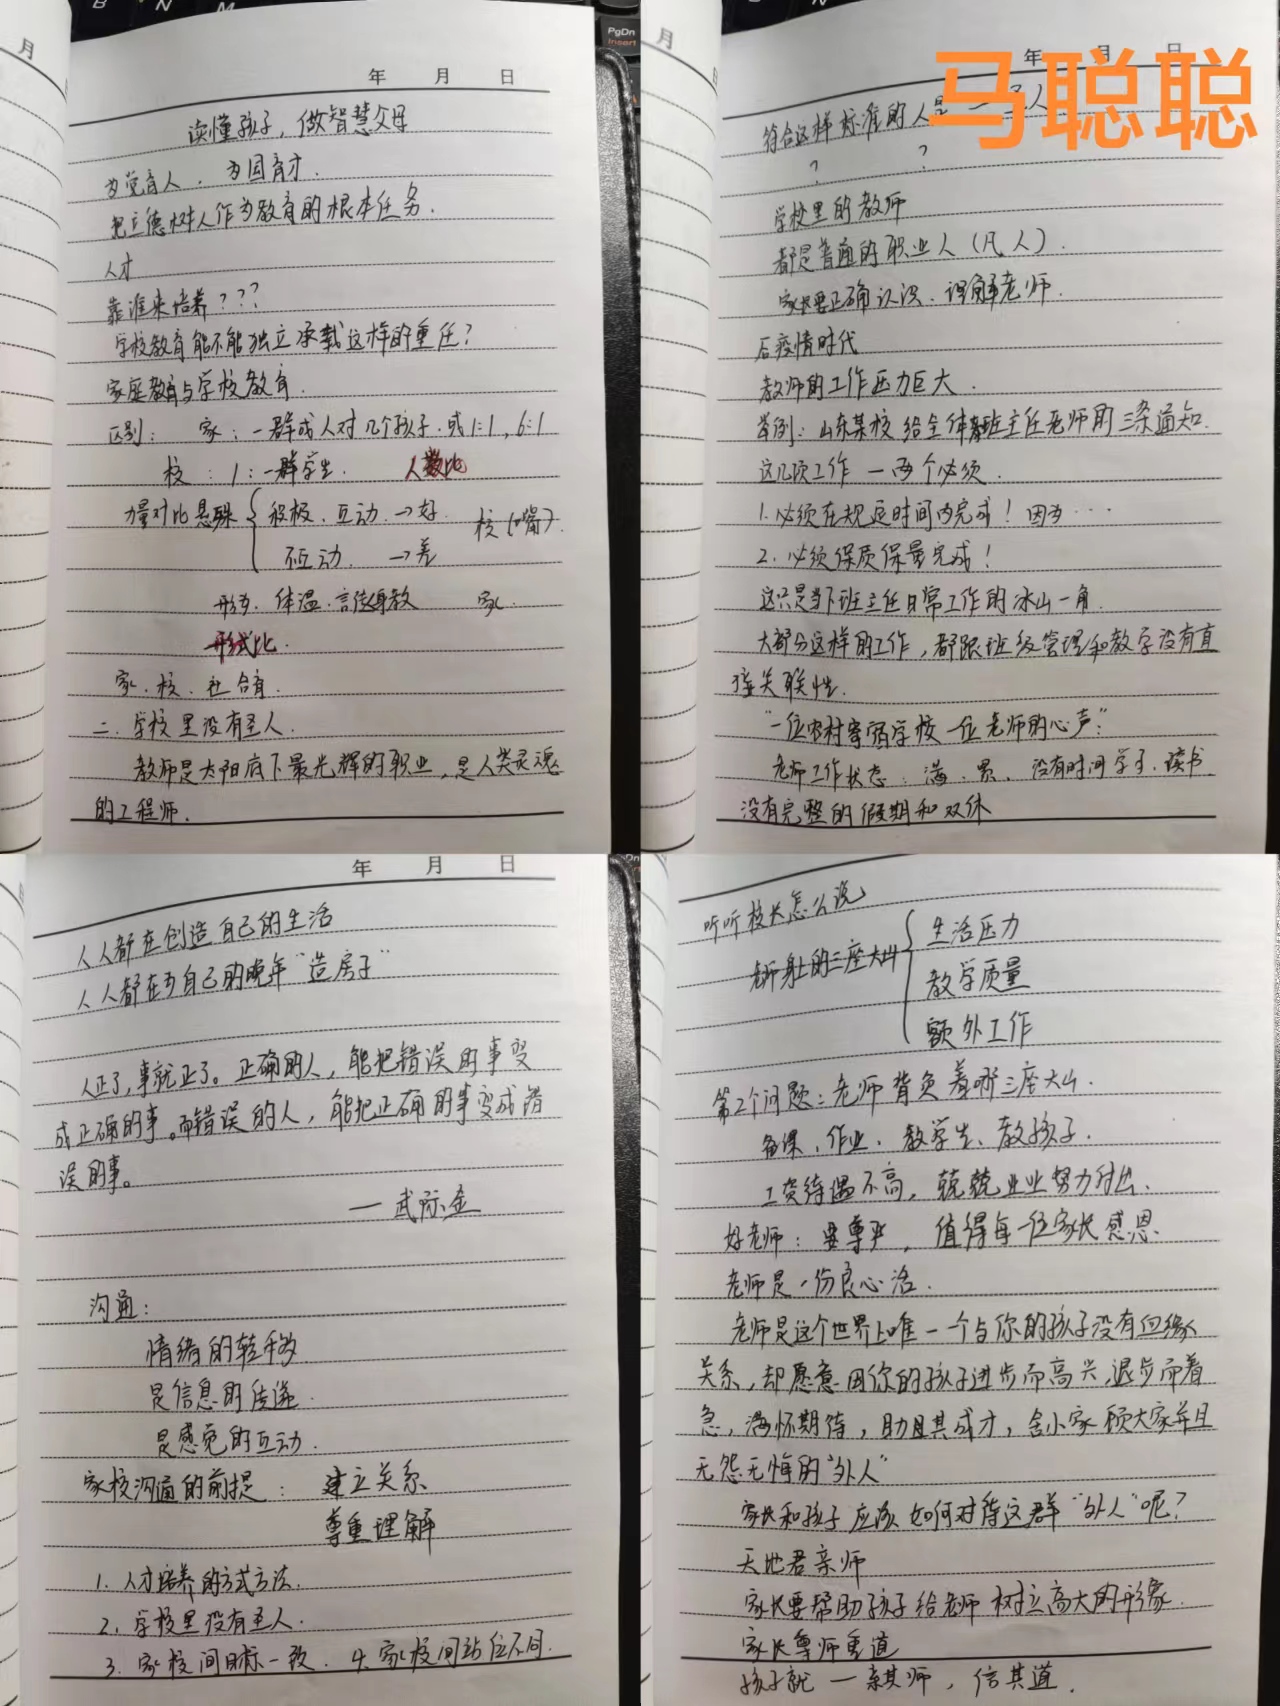 年 月 日
读懂孩子，做智慧父母
为党育人、为国育才.
把立德树人作为教育的根本任务.
人才
靠谁来培养???
学校教育能不能独立承载这样的重任?
家庭教育与学校教育.
区别: 家: 一群成人对几个孩子.或1:1, 6:1
校: 1:一群学生. 人数比
力量对比悬殊 积极、互动.→好. 校(嘴).
不互动. →差
形式. 体温.言传身教 家.
形式比.
家、校、社合育.
二.学校里没有圣人.
教师是太阳底下最光辉的职业,是人类灵魂
的工程师.
月
年 月 日
马聪聪
符合这样标准的人是 人
? ?
学校里的教师
都是普通的职业人(凡人).
家长要正确认识、理解老师.
后疫情时代
教师的工作压力巨大.
举例: 山东某校给全体班主任老师的三条通知.
这几项工作一两个必须.
1.必须在规定时间内完成! 因为...
2.必须保质保量完成!
这只是当下班主任日常工作的冰山一角.
大部分这样的工作,都跟班级管理和教学没有直
接关联性.
"一位农村寄宿学校一位老师的心声:"
老师工作状态: 满、累、没有时间学习、读书.
没有完整的假期和双休
月
年 月 日
人人都在创造自己的生活
人人都在为自己的晚年"造房子"
人正了,事就正了。正确的人,能把错误的事变
成正确的事。而错误的人,能把正确的事变成错
误的事。
—武际金
沟通:
情绪的转移
是信息的传递.
是感觉的互动.
家校沟通的前提: 建立关系
尊重理解
1.人才培养的方式方法.
2.学校里没有圣人.
3.家校间目标一致. 4.家校间站位不同.
听听校长怎么说
老师身上的三座大山 生活压力
教学质量
额外工作
第2个问题:老师背负着哪三座大山.
备课、作业、教学生、教孩子.
工资待遇不高,兢兢业业努力付出.
好老师: 要尊严,值得每一位家长感恩
老师是一份良心活.
老师是这个世界上唯一一个与你的孩子没有血缘
关系,却愿意因你的孩子进步而高兴,退步而着
急,满怀期待,助其成才,舍小家顾大家并且
无怨无悔的"外人"
家长和孩子应该如何对待这群"外人"呢?
天地君亲师
家长要帮助孩子给老师树立高大的形象.
家长尊师重道
孩子就一亲其师,信其道.